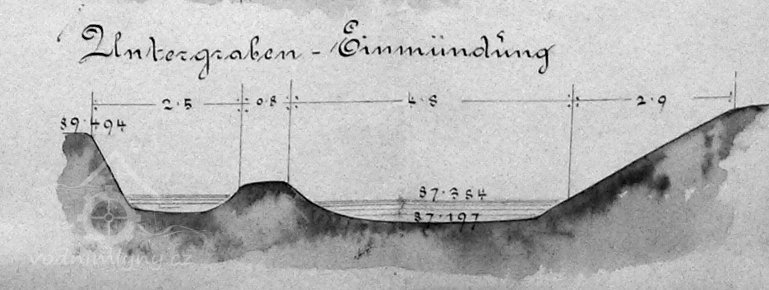 Untergraben - Einmündung
2.5 0.8 4.8 2.9
89.494
87.384
87.197
vodnimlyny.cz